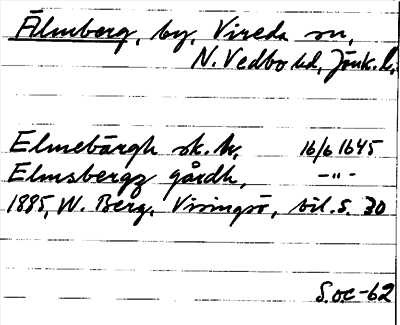 Älmberg, by, Vireda sn,
N. Vedbo hd, Jönk. l.
Elmebärgh sk. h, 16/6 1645
Elmsbergz gårdh, -"-
1885, W. Berg, Visingsö, bil. s. 30
S. oc -62